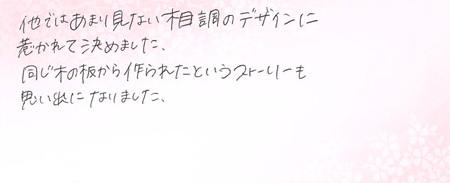 他ではあまり見ない相調のデザインに
惹かれて決めました、
同じ木の板から作られたというストーリーも
思い出になりました、